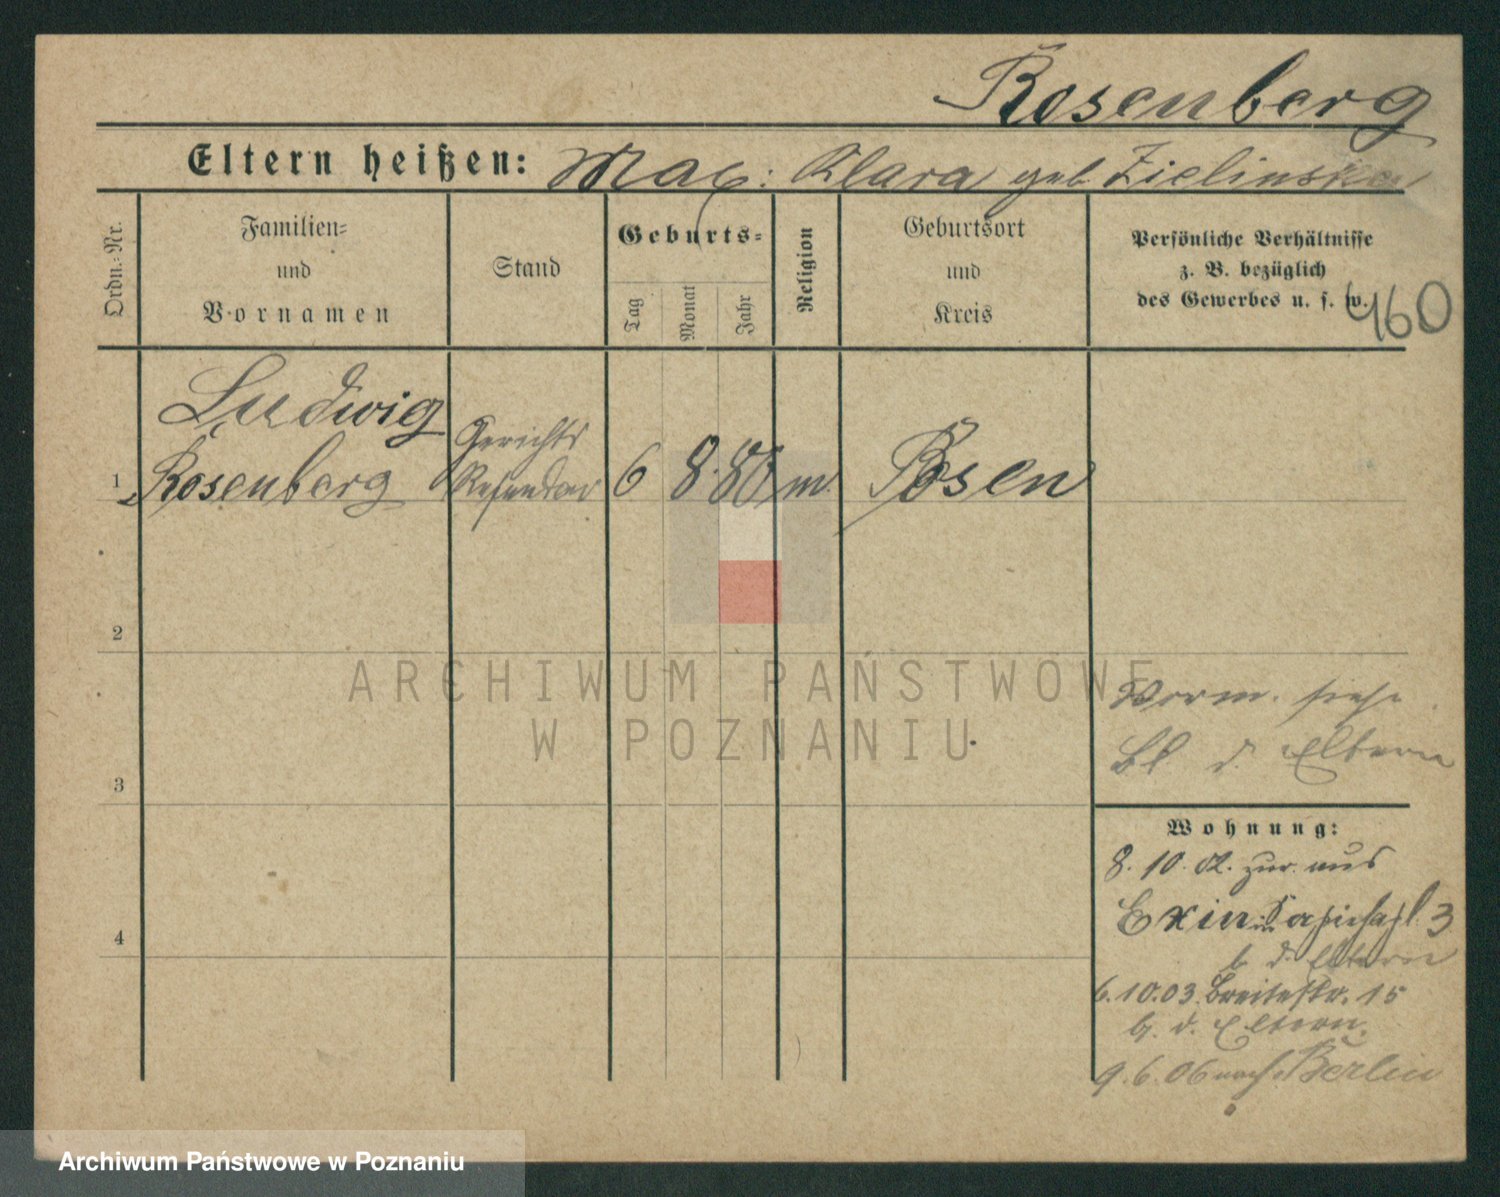 Rosenberg
Eltern heißen: Max: Klara geb Zielinska
Ordn.-Nr.
Familien-
und
Vornamen
Stand
Geburts-
Tag
Monat
Jahr
Religion
Geburtsort
und
Kreis
Persönliche Verhältnisse
z. B. bezüglich
des Gewerbes u. s. w.
460
Ludwig
Gerichts
1 Rosenberg Referendar 6 8. 80 m. Posen
2
ARCHIWUM PAŃSTWOWE
W POZNANIU
Vorm. siehe
Bl. d. Eltern
3
Wohnung:
8. 10. 02. zur. aus
Exin in Sapiehapl. 3
b. d. Eltern
4
6.10.03. Breitestr. 15
b. d. Eltern.
9.6.06 nach Berlin
Archiwum Państwowe w Poznaniu